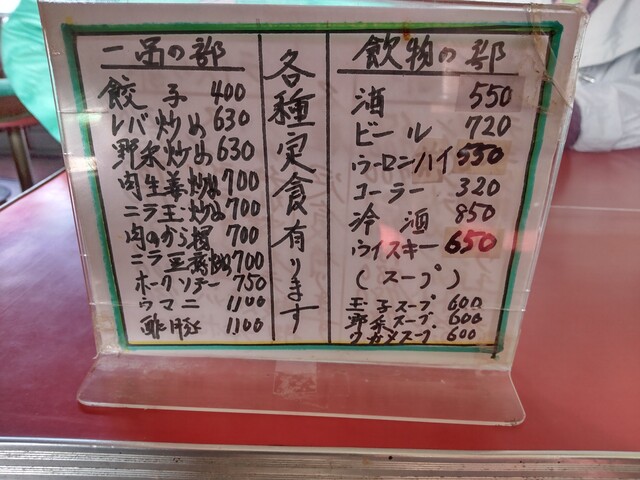 一品の部
餃子 400
レバ炒め 630
野菜炒め 630
肉生姜炒め 700
ニラ玉炒め 700
肉のから揚 700
ニラ豆腐炒め 700
ポークソテー 750
ウマニ 1100
酢豚 1100
各種定食有ります
飲物の部
酒 550
ビール 720
ウーロンハイ 550
コーラー 320
冷酒 850
ウイスキー 650
(スープ)
玉子スープ 600
野菜スープ 600
ワカメスープ 600